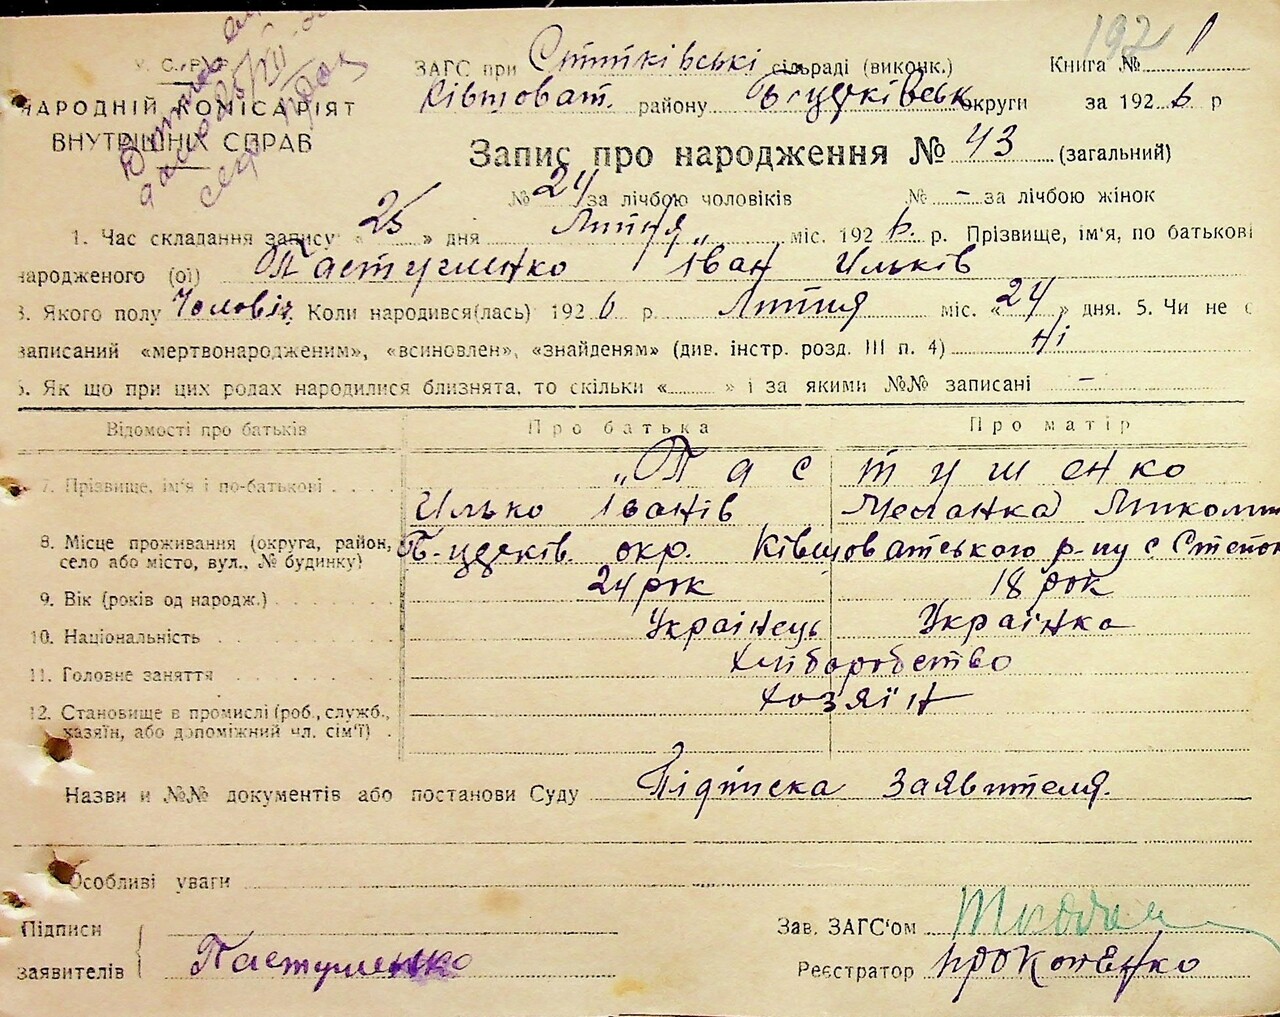 У.С.Р.Р.
НАРОДНІЙ КОМІСАРІЯТ
ВНУТРІШНІХ СПРАВ
192 1
ЗАГС при сільраді (виконк.) Книга №
району округи за 1926 р
Запис про народження № 43 (загальний)
№ 24 за лічбою чоловіків № - за лічбою жінок
1. Час складання запису « 25 » дня Липня міс. 1926. р. Прізвище, ім'я, по батькові
народженого (ої) Пастушенко Іван Ильків
3. Якого полу Чоловіч. Коли народився(лась) 1926 р. Липня міс. « 24 » дня. 5. Чи не є
записаний «мертвонародженим», «всиновлен», «знайденям» (див. інстр. розд. III п. 4) Ні
6. Як що при цих родах народилися близнята, то скільки « » і за якими №№ записані -
Відомості про батьків Про батька Про матір
7. Прізвище, ім'я і по-батькові „Пастушенко
Илько Іванів Меланка
8. Місце проживання (округа, район, село або місто, вул., № будинку) Б-цдеків. окр. Ківшоватського р-ну с Степок
9. Вік (років од народж.) 24 рок 18 рок
10. Національність Українець Українка
11. Головне заняття хліборобство
12. Становище в промислі (роб., служб., хазяїн, або допоміжний чл. сім'ї) хозяїн
Назви и №№ документів або постанови Суду Підписка заявителя.
Особливі уваги
Підписи заявителів Пастушенко
Зав. ЗАГС'ом
Реєстратор Прокопенко